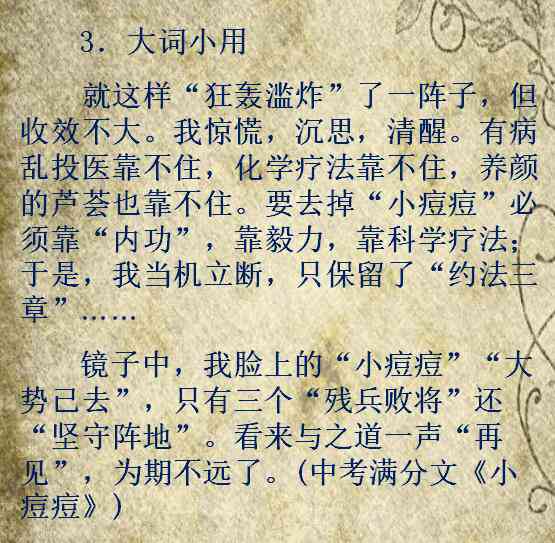 3．大词小用
就这样“狂轰滥炸”了一阵子，但
收效不大。我惊慌，沉思，清醒。有病
乱投医靠不住，化学疗法靠不住，养颜
的芦荟也靠不住。要去掉“小痘痘”必
须靠“内功”，靠毅力，靠科学疗法；
于是，我当机立断，只保留了“约法三
章”……
镜子中，我脸上的“小痘痘”“大
势已去”，只有三个“残兵败将”还
“坚守阵地”。看来与之道一声“再
见”，为期不远了。(中考满分文《小
痘痘》)